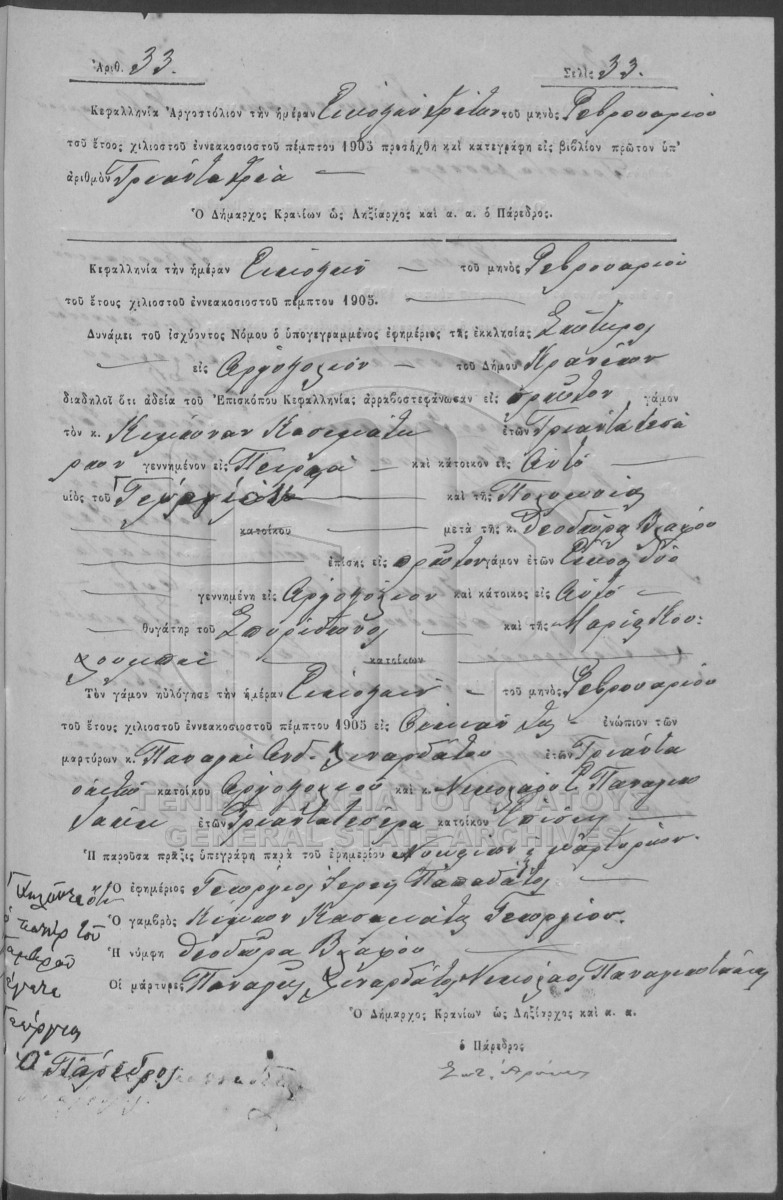 Ἀριθ. 33. Σελὶς 33.
Κεφαλληνία Ἀργοστόλιον τὴν ἡμέραν Εἰκοστὴν τρίτην τοῦ μηνὸς Φεβρουαρίου
τοῦ ἔτους χιλιοστοῦ ἐννεακοσιοστοῦ πέμπτου 1905 προσήχθη καὶ κατεγράφη εἰς βιβλίον πρῶτον ὑπ'
ἀριθμὸν Τριάντα τρία
Ὁ Δήμαρχος Κρανίων ὡς Ληξίαρχος καὶ α. α. ὁ Πάρεδρος.
Κεφαλληνία τὴν ἡμέραν Εἰκοστὴν τοῦ μηνὸς Φεβρουαρίου
τοῦ ἔτους χιλιοστοῦ ἐννεακοσιοστοῦ πέμπτου 1905.
Δυνάμει τοῦ ἰσχύοντος Νόμου ὁ ὑπογεγραμμένος ἐφημέριος τῆς ἐκκλησίας Σωτῆρος
εἰς Ἀργοστόλιον τοῦ Δήμου Κρανίων
διαδηλοῖ ὅτι ἀδεία τοῦ Ἐπισκόπου Κεφαλληνίας ἀρραβοστεφάνωσαν εἰς πρῶτον γάμον
τὸν κ. Κίμωναν Κασιμάτη ἐτῶν Τριάντα τεσά
ρων γεννημένον εἰς Πειραιᾶ καὶ κάτοικον εἰς Αὐτό
υἱὸς τοῦ Γεωργίου καὶ τῆς
κατοίκου μετὰ τῆς κ. Θεοδώρα Βλάχου
ἐπίσης εἰς πρῶτον γάμον ἐτῶν Εἴκοσι δύο
γεννημένη εἰς Ἀργοστόλιον καὶ κάτοικος εἰς Αὐτό
θυγάτηρ τοῦ Σπυρίδωνος καὶ τῆς Μαρίας
κατοίκων
Τὸν γάμον ηὐλόγησε τὴν ἡμέραν Εἰκοστὴν τοῦ μηνὸς Φεβρουαρίου
τοῦ ἔτους χιλιοστοῦ ἐννεακοσιοστοῦ πέμπτου 1905 εἰς Οἰκίαν της ἐνώπιον τῶν
μαρτύρων κ. Παναγῆ Ἀνδ. Λιναρδάτου ἐτῶν Τριάντα
ὀκτώ κατοίκου Ἀργοστολίου καὶ κ. Νικολάου Παναγιω
τάκη ἐτῶν Τριάντα τέσσερα κατοίκου Ἐπίσης
ΓΕΝΙΚΑ ΑΡΧΕΙΑ ΤΟΥ ΚΡΑΤΟΥΣ
GENERAL STATE ARCHIVES
Ἡ παροῦσα πρᾶξις ὑπεγράφη παρὰ τοῦ ἐφημερίου Νυμφίων & μαρτύρων.
Ὁ ἐφημέριος Γεώργιος Ἱερεὺς Παπαδάτος
Ὁ γαμβρὸς Κίμων Κασιμάτης Γεωργίου.
Ἡ νύμφη Θεοδώρα Βλάχου
Οἱ μάρτυρες Παναγῆς Λιναρδάτος Νικόλαος Παναγιωτάκης
Ὁ Δήμαρχος Κρανίων ὡς Ληξίαρχος καὶ α. α.
ὁ Πάρεδρος
ὅτι
ὁ πατὴρ τοῦ
γαμβροῦ
Ὁ Πάρεδρος